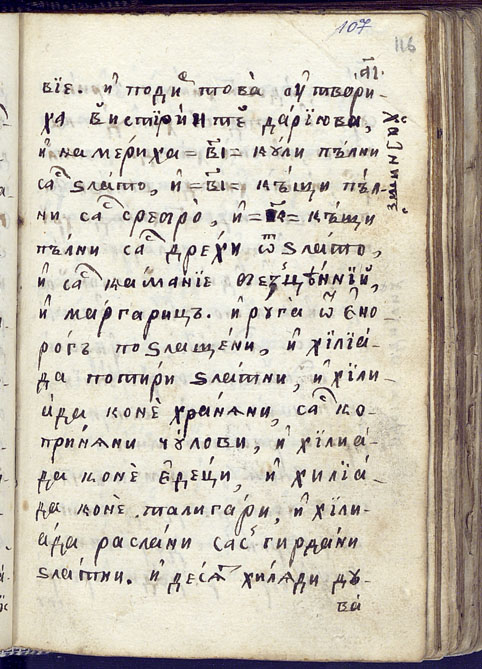 107
116
віе. и҆ поди това ѹ҆твори-
ха вистїрїите дарїюви,
и҆ намериха = в҃і = кули пълни
сас ѕлато, и҆ = в҃і = къщи пъл-
ни сас сребро, и҆ = к҃ = къщи
пълни сас дрехи ѿ ѕлато,
и҆ сас камание безцѣннїи,
и҆ маргарицъ. и҆ руга ѿ е҆но-
рогъ поѕлащени, и҆ хїлїа-
да потири ѕлатни, и҆ хїли-
ада коне хранѧни, сас ко-
принѧни чулови, и҆ хїлиа-
да коне едеци, и҆ хилїа-
да коне талигари, и҆ хїли-
ада раслани сас гирдани
ѕлатни. и҆ десѧт хилѧди ду-
ва